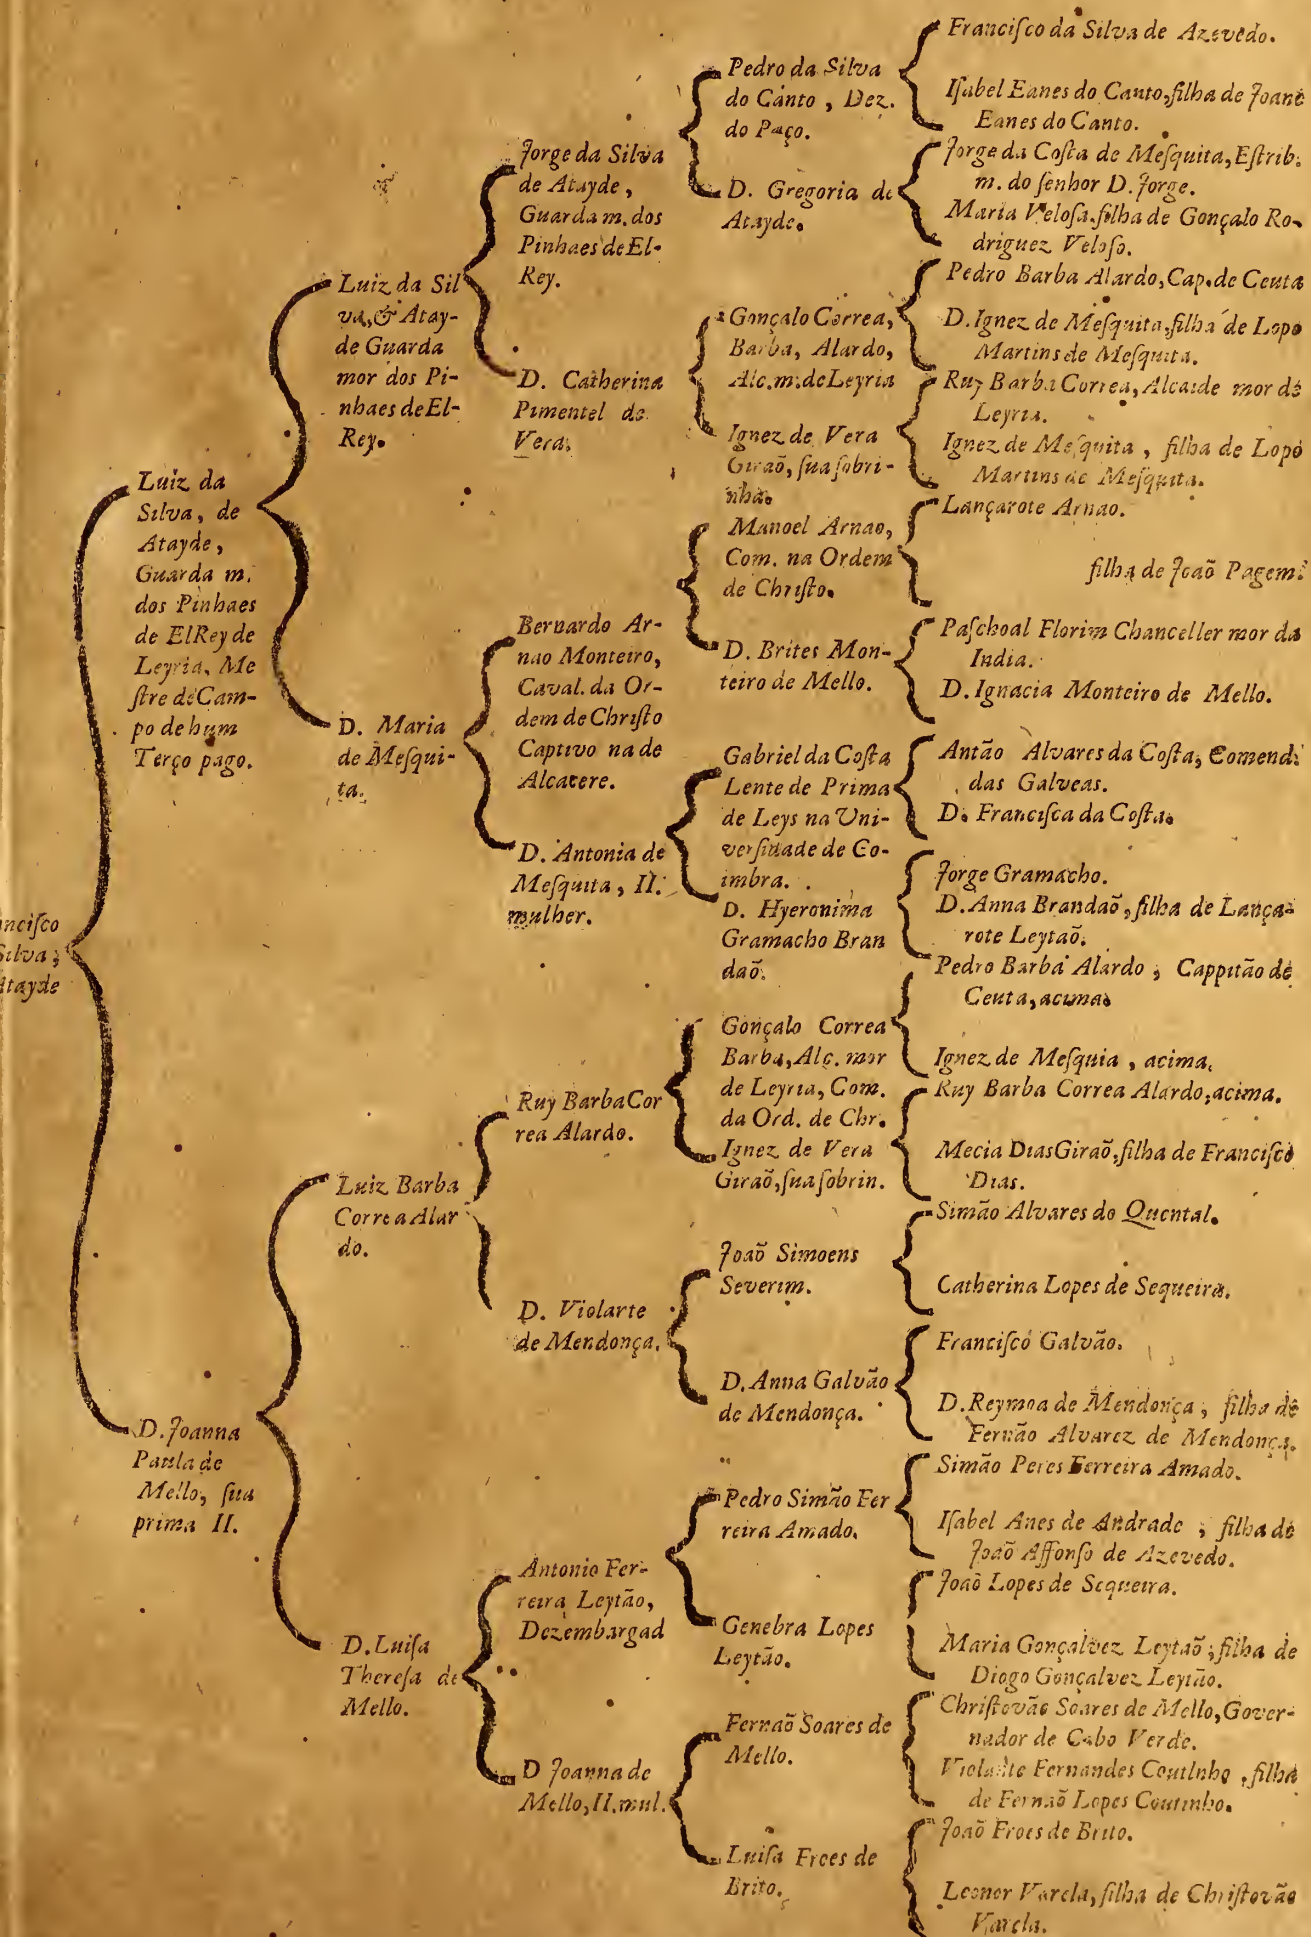 Luiz da
Silva, de
Atayde,
Guarda m.
dos Pinhaes
de ElRey de
Leyria, Me
ſtre de Cam-
po de hum
Terço pago.
ncifco
Silva,
Atayde
D. Joanna
Paula de
Mello, ſua
prima II.
Luiz da Sil
va, & Atay-
de Guarda
mor dos Pi-
nhaes de El-
Rey.
D. Maria
de Meſqui-
ta.
Luiz Barba
Correa Alar
do.
D. Luiſa
Thereſa de
Mello.
Jorge da Silva
de Atayde,
Guarda m. dos
Pinhaes de El-
Rey.
D. Catherina
Pimentel de
Vera.
Bernardo Ar-
nao Monteiro,
Caval. da Or-
dem de Chriſto
Captivo na de
Alcacere.
D. Antonia de
Meſquita, II.
mulher.
Ruy Barba Cor
rea Alardo.
D. Violarte
de Mendonça.
Antonio Fer-
reira Leytão,
Dezembargad
D Joanna de
Mello, II. mul.
Pedro da Silva
do Canto, Dez.
do Paço.
D. Gregoria de
Atayde.
Gonçalo Correa,
Barba, Alardo,
Alc. m. de Leyria
Ignez de Vera
Giraõ, ſua ſobri-
nha.
Manoel Arnao,
Com. na Ordem
de Chriſto.
D. Brites Mon-
teiro de Mello.
Gabriel da Coſta
Lente de Prima
de Leys na Uni-
verſidade de Co-
imbra.
D. Hyeronima
Gramacho Bran
daõ.
Gonçalo Correa
Barba, Alc. mor
de Leyria, Com.
da Ord. de Chr.
Ignez de Vera
Giraõ, ſua ſobrin.
Joaõ Simoens
Severim.
D. Anna Galvão
de Mendonça.
Pedro Simão Fer
reira Amado.
Genebra Lopes
Leytão.
Fernaõ Soares de
Mello.
Luiſa Froes de
Brito.
Franciſco da Silva de Azevedo.
Iſabel Eanes do Canto, filha de Joane
Eanes do Canto.
Jorge da Coſta de Meſquita, Eſtrib.
m. do ſenhor D. Jorge.
Maria Veloſa, filha de Gonçalo Ro-
driguez Veloſo.
Pedro Barba Alardo, Cap. de Ceuta
D. Ignez de Meſquita, filha de Lopo
Martins de Meſquita.
Ruy Barba Correa, Alcaide mor de
Leyria.
Ignez de Meſquita, filha de Lopo
Martins de Meſquita.
Lançarote Arnao.
filha de Joaõ Pagem.
Paſchoal Florim Chanceller mor da
India.
D. Ignacia Monteiro de Mello.
Antão Alvares da Coſta, Comend.
das Galveas.
D. Franciſca da Coſta.
Jorge Gramacho.
D. Anna Brandaõ, filha de Lança-
rote Leytaõ.
Pedro Barba Alardo, Cappitão de
Ceuta, acima.
Ignez de Meſquia, acima.
Ruy Barba Correa Alardo, acima.
Mecia Dias Giraõ, filha de Franciſco
Dias.
Simão Alvares do Quental.
Catherina Lopes de Sequeira.
Franciſco Galvão.
D. Reymoa de Mendonça, filha de
Fernão Alvarez de Mendonça.
Simão Peres Ferreira Amado.
Iſabel Anes de Andrade, filha de
Joaõ Affonſo de Azevedo.
Joaõ Lopes de Sequeira.
Maria Gonçalvez Leytaõ, filha de
Diogo Gonçalvez Leytão.
Chriſtovão Soares de Mello, Gover-
nador de Cabo Verde.
Violante Fernandes Coutinho, filha
de Fernaõ Lopes Coutinho.
Joaõ Froes de Brito.
Leonor Varela, filha de Chriſtovão
Varela.